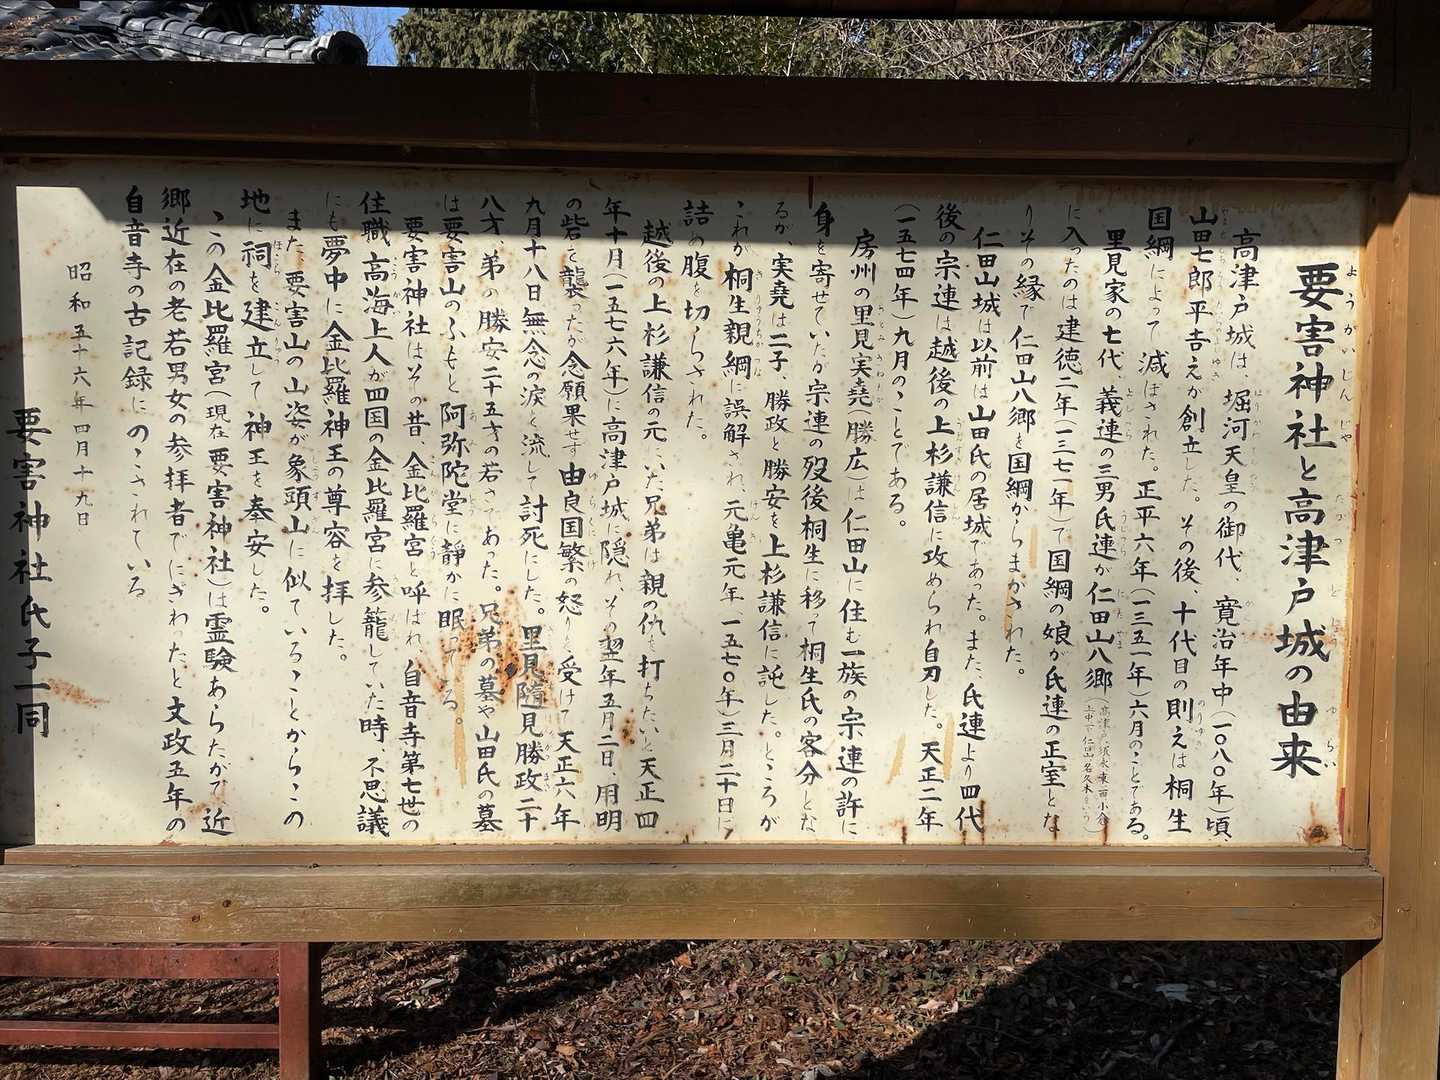 要害神社と高津戸城の由来
高津戸城は、堀河天皇の御代、寛治年中(一〇八〇年)頃、
山田七郎平吉之が創立した。その後、十代目の則之は桐生
国綱によって滅ぼされた。正平六年(一三五一年)六月のことである。
里見家の七代、義連の三男氏連が仁田山八郷
に入ったのは建徳二年(一三七一年)で国綱の娘が氏連の正室とな
りその縁で仁田山八郷を国綱からまかされた。
仁田山城は以前は山田氏の居城であった。また、氏連より四代
後の宗連は越後の上杉謙信に攻められ自刃した。天正二年
(一五七四年)九月のことである。
房州の里見実堯(勝広)は仁田山に住む一族の宗連の許に
身を寄せていたが宗連の歿後桐生に移って桐生氏の客分とな
るが、実堯は二子、勝政と勝安を上杉謙信に託した。ところが
これが桐生親綱に誤解され、元亀元年(一五七〇年)三月二十日に
詰め腹を切らされた。
越後の上杉謙信の元にいた兄弟は親の仇を打ちたいと天正四
年十月(一五七六年)に高津戸城に隠れ、その翌年五月二日、用明
の砦を襲ったが念願果せず由良国繁の怒りを受けて天正六年
九月十八日無念の涙を流して討死にした。里見隨見勝政二十
八才、弟の勝安二十五才の若さであった。兄弟の墓や山田氏の墓
は要害山のふもと阿弥陀堂に静かに眠っている。
要害神社はその昔、金比羅宮と呼ばれ自音寺第七世の
住職高海上人が四国の金比羅宮に参籠していた時、不思議
にも夢中に金比羅神王の尊容を拝した。
また、要害山の山姿が象頭山に似ていることからこの
地に祠を建立して神王を奉安した。
この金比羅宮(現在要害神社)は霊験あらたかで近
郷近在の老若男女の参拝者でにぎわったと文政五年の
自音寺の古記録にのこされている
昭和五十六年四月十九日
要害神社氏子一同